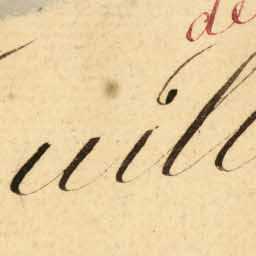 de
uill